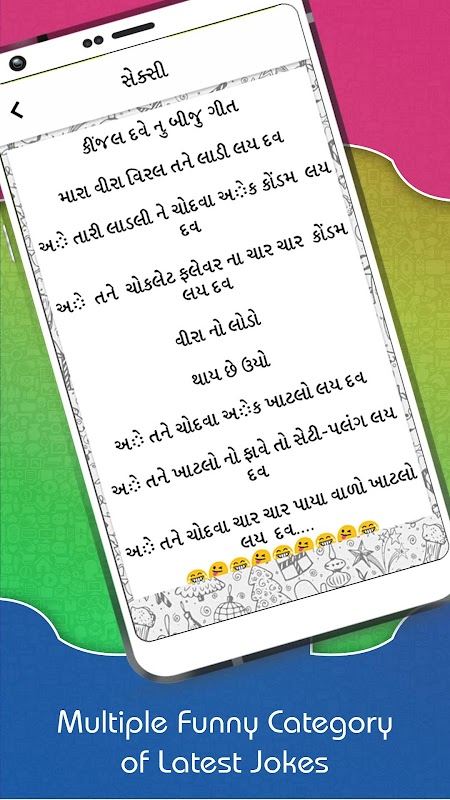 સેકસી
કીંજલ દવે નુ બીજુ ગીત
મારા વીરા વિરલ તને લાડી લય દવ
અે તારી લાડલી ને ચોદવા અેક કોંડમ લય
દવ
અે તને ચોકલેટ ફલેવર ના ચાર ચાર કોંડમ
લય દવ
વીરા નો લોડો
થાય છે ઉયો
અે તને ચોદવા અેક ખાટલો લય દવ
અે તને ખાટલો નો ફાવે તો સેટી-પલંગ લય
દવ
અે તને ચોદવા ચાર ચાર પાયા વાળો ખાટલો
લય દવ....
Multiple Funny Category
of Latest Jokes